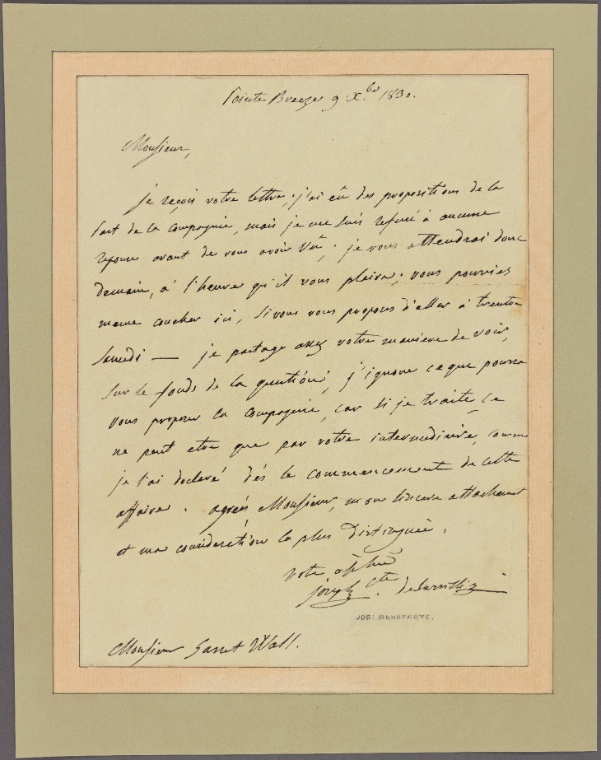 Pointe Breeze 9 Xbre 1830.
Monsieur,
je reçois votre lettre; j'ai eû des propositions de la
part de la Compagnie, mais je me suis refusé à aucune
reponse avant de vous avoir Vû; je vous attendrai donc
demain, à l'heure qu'il vous plaira; vous pourriez
meme coucher ici, si vous vous proposés d'aller à trenton
Samedi — je partage assez votre maniere de voir,
sur le fonds de la question, j'ignore ce que pourra
vous proposer la Compagnie, car si je traite, ce
ne peut etre que par votre intermediaire, comme
je l'ai declaré dés le commencement de cette
affaire. agreés Monsieur, mon sincere attachement
et ma consideration la plus distinguée.
votre affné
joseph Cte de Survilliers
JOS: BONAPARTE.
Monsieur Garret Wall.